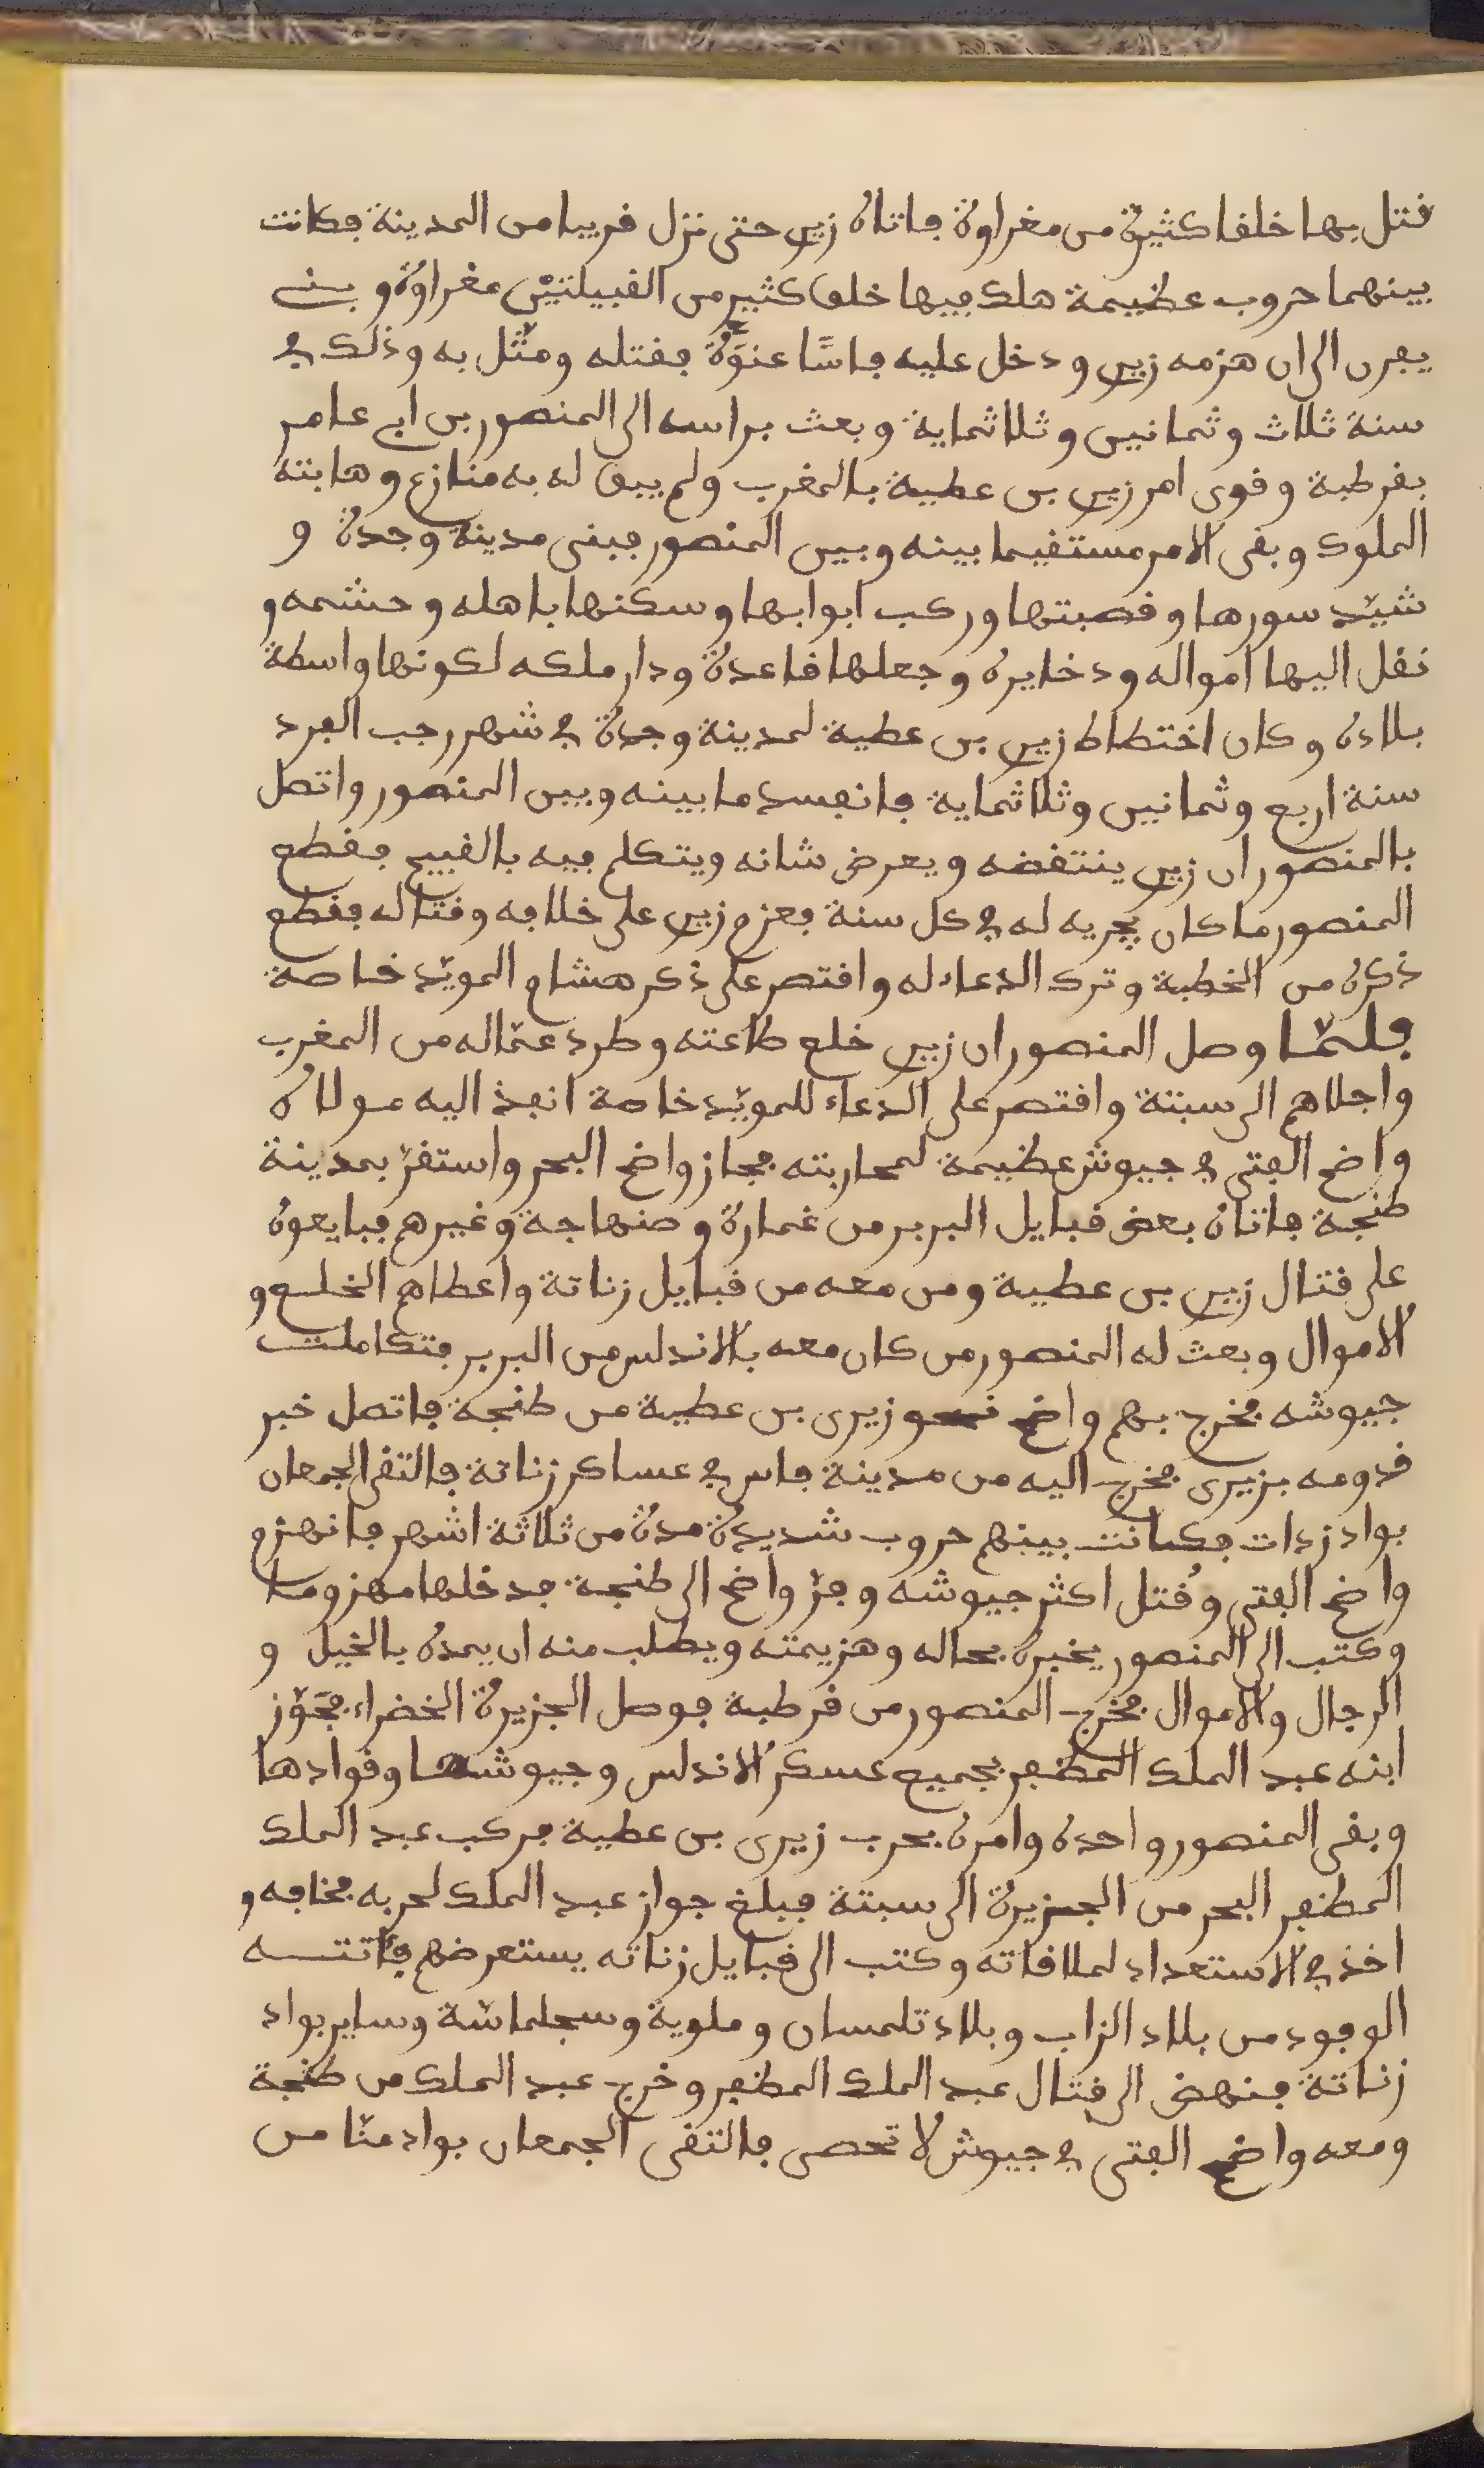 قتل بها خلقا كثيرة من مغراوة فاتاه زيرى حتى نزل قريبا من المدينة فكانت
بينهما حروب عظيمة هلك فيها خلق كثير من القبيلتين مغراوة و بنى
يفرن الى ان هزمه زيرى و دخل عليه فاسًا عنوَة فقتله و مثّل به و ذلك في
سنة ثلاث و ثمانين و ثلاثماية و بعث براسه الى المنصور بن ابى عامر
بقرطبة و قوى امر زيرى بن عطية بالمغرب و لم يبق له به منازع و هابته
الملوك و بقى الامر مستقيما بينه و بين المنصور فبنى مدينة وجدة و
شيّد سورها و قصبتها و ركب ابوابها و سكنها باهله و حشمه و
نقل اليها امواله و دخايره و جعلها قاعدة و دار ملكه لكونها واسطة
بلاده و كان اختطاط زيرى بن عطية لمدينة وجدة في شهر رجب الفرد
سنة اربع و ثمانين و ثلاثماية فانفسد ما بينه و بين المنصور و اتصل
بالمنصور ان زيرى ينتقضه و يعرض شانه و يتكلم فيه بالقبيح فقطع
المنصور ما كان يجريه له في كل سنة فعزم زيرى على خلافه و قتاله فقطع
ذكره من الخطبة و ترك الدعاء له و اقتصر على ذكر هشام المويّد خاصة
فلمّا وصل المنصور ان زيرى خلع طاعته و طرد عمّاله من المغرب
و اجلاهم الى سبتة و اقتصر على الدعاء للمويّد خاصة انفذ اليه مولاه
واضح الفتى في جيوش عظيمة لمحاربته فجاز واضح البحر و استقرّ بمدينة
طنجة فاتاه بعض قبايل البربر من غمارة و صنهاجة و غيرهم فبايعوه
على قتال زيرى بن عطية و من معه من قبايل زناتة و اعطاهم الخلع و
الاموال و بعث له المنصور من كان معه بالاندلس من البربر فتكاملت
جيوشه فخرج بهم واضح نحو زيرى بن عطية من طنجة فاتصل خبر
قدومه بزيرى فخرج اليه من مدينة فاس في عساكر زناتة فالتقى الجمعان
بواد زدات فكانت بينهم حروب شديدة مدة من ثلاثة اشهر فانهزم
واضح الفتى و قُتل اكثر جيوشه و فرّ واضح الى طنجة فدخلها مهزوما
و كتب الى المنصور يخبره بحاله و هزيمته و يطلب منه ان يمده بالخيل و
الرجال و الاموال فخرج المنصور من قرطبة فوصل الجزيرة الخضراء فجَوّز
ابنه عبد الملك المظفر بجميع عسكر الاندلس و جيوشها و قوادها
و بقى المنصور واحده و امره بحرب زيرى بن عطية فركب عبد الملك
المظفر البحر من الجزيرة الى سبتة فبلغ جواز عبد الملك لحربه فخافه و
اخذ في الاستعداد لملاقاته و كتب الى قبايل زناته يستعرضهم فاتته
الوفود من بلاد الزاب و بلاد تلمسان و ملوية و سجلماسّة و ساير بواد
زناتة فنهض الى قتال عبد الملك المظفر و خرج عبد الملك من طنجة
و معه واضح الفتى في جيوش لا تحصى فالتقى الجمعان بواد منّا من